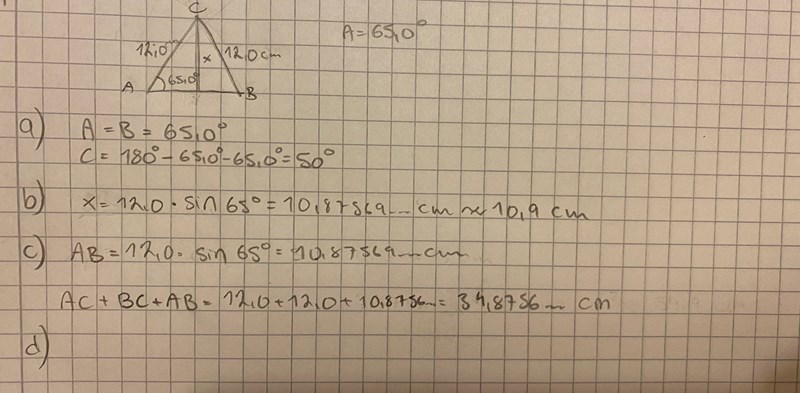 C
A = 65,0°
12,0
x
12,0 cm
A
65,0°
B
a) A = B = 65,0°
C = 180° - 65,0° - 65,0° = 50°
b) x = 12,0 · sin 65° = 10,87569... cm ≈ 10,9 cm
c) AB = 12,0 · sin 65° = 10,87569... cm
AC + BC + AB = 12,0 + 12,0 + 10,8756... = 34,8756... cm
d)